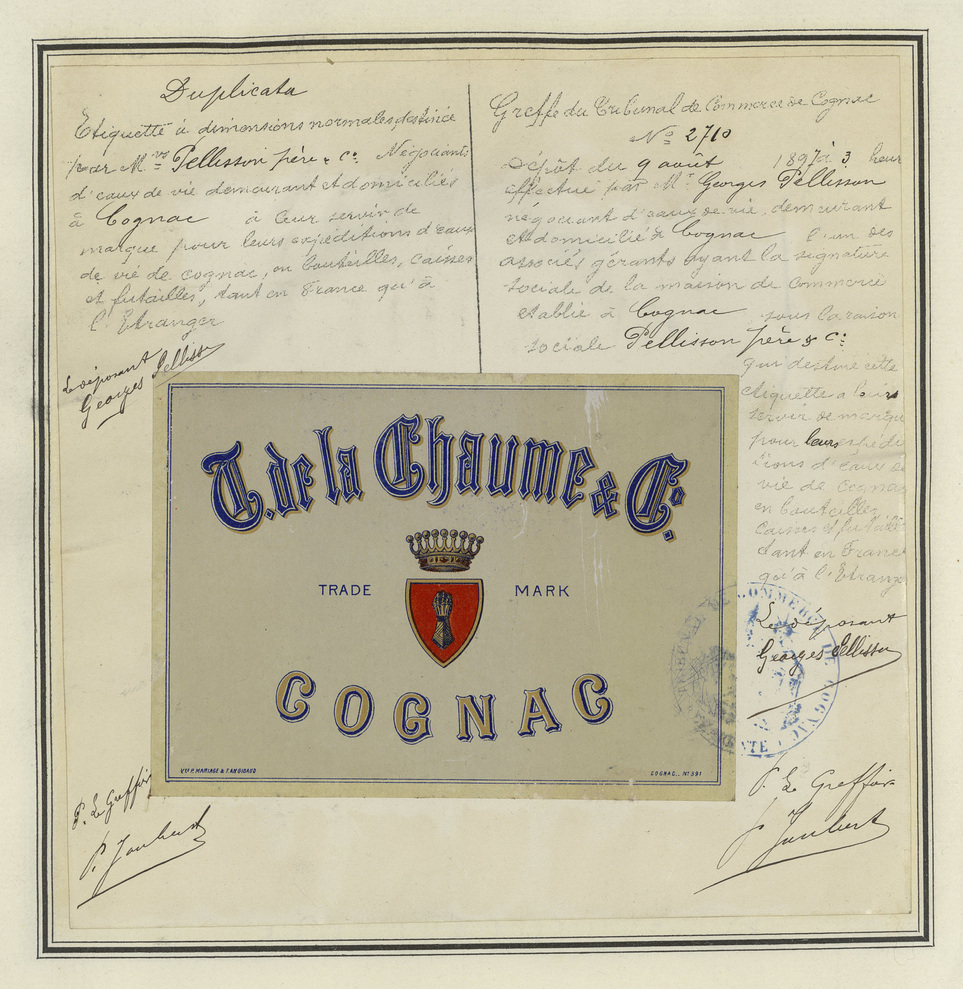 Duplicata
Etiquette à dimensions normales, destinée
par M.rs Pellisson père & Co. Négociants
d'eaux de vie demeurant et domiciliés
à Cognac à leur servir de
marque pour leurs expéditions d'eaux
de vie de cognac, en bouteilles, caisses
et futailles, tant en France qu'à
l'Etranger
Le déposant
Georges Pellisson
Greffe du Tribunal de Commerce de Cognac
No 2710
Dépôt du 9 août 1897 à 3 heur
effectué par Mr Georges Pellisson
négociant d'eaux de vie, demeurant
et domicilié à Cognac l'un des
associés gérants ayant la signature
sociale de la maison de Commerce
établie à Cognac, sous la raison
sociale Pellisson père & Co.
qui destine cette
étiquette à leur
servir de marque
pour leurs expédi
tions d'eaux de
vie de Cognac
en bouteilles
caisses et futailles
tant en France
qu'à l'Etrang
Le déposant
Georges Pellisson
T. de la Chaume & Co.
TRADE MARK
COGNAC
COGNAC._ No 591
TRIBUNAL DE COMMERCE DE COGNAC
P. Le Greffier
P. Joubert
P. Le Greffier
P. Joubert